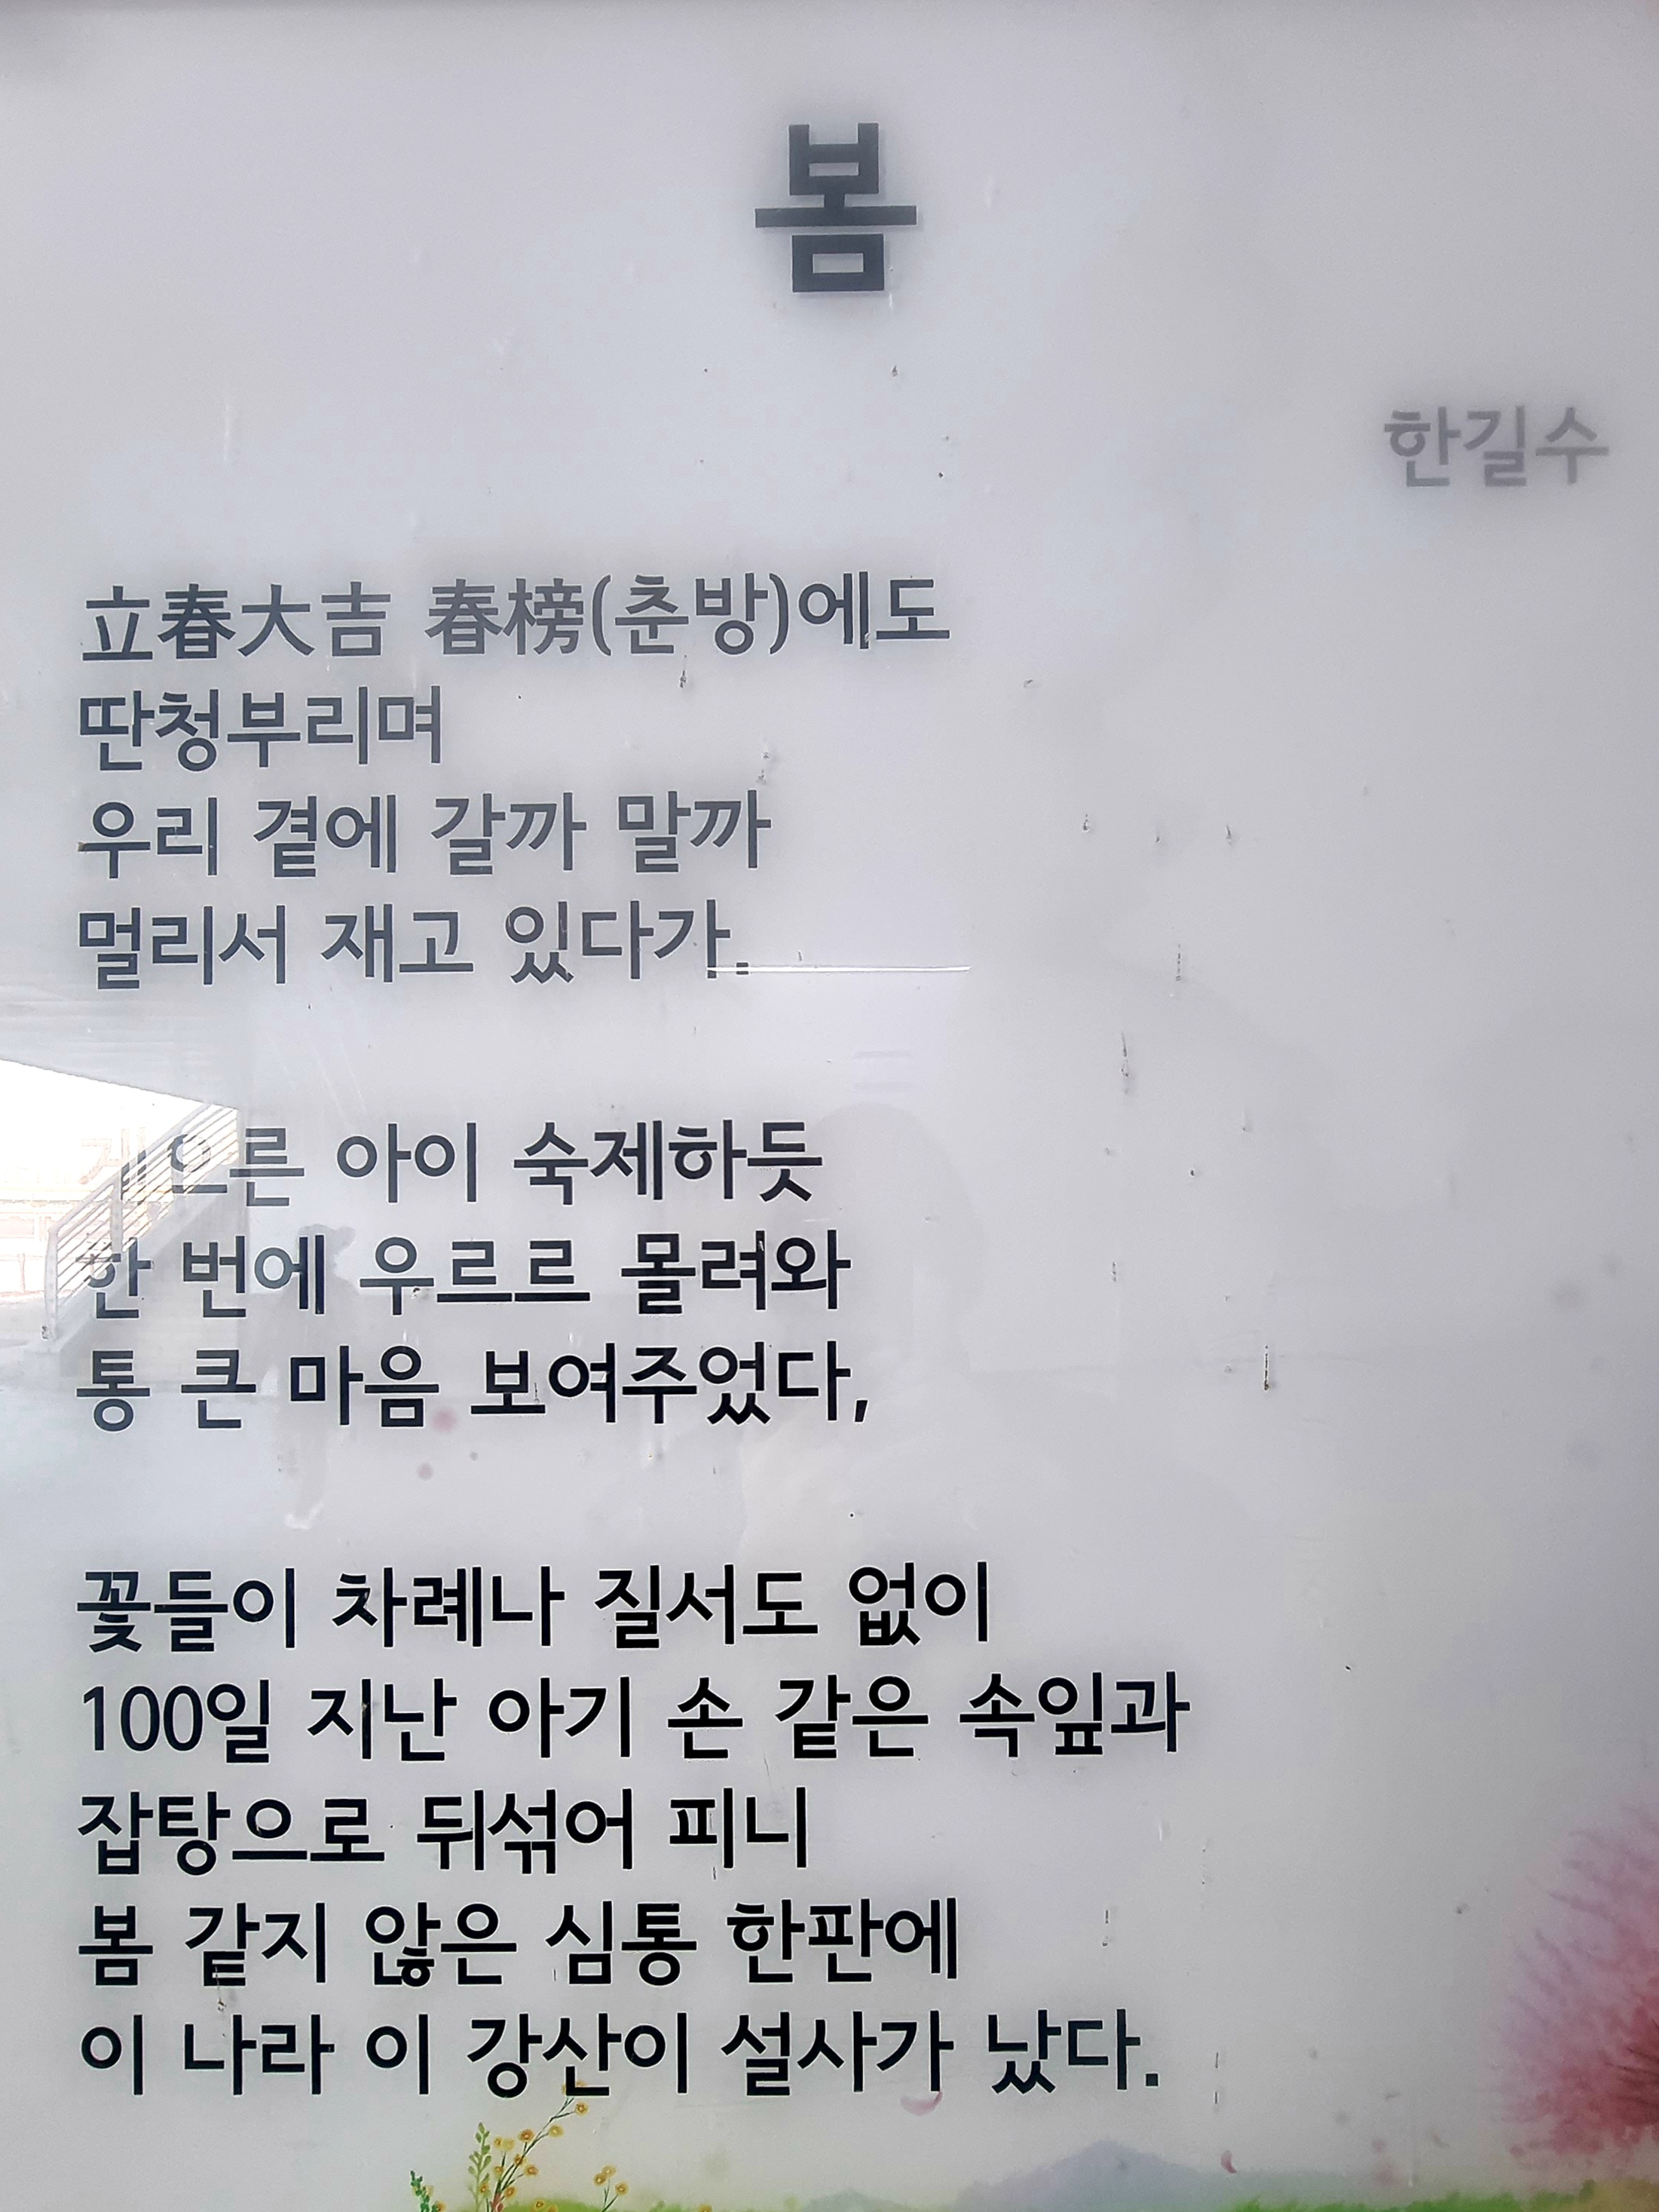 봄
한길수
立春大吉 春榜(춘방)에도
딴청부리며
우리 곁에 갈까 말까
멀리서 재고 있다가.
게으른 아이 숙제하듯
한 번에 우르르 몰려와
통 큰 마음 보여주었다,
꽃들이 차례나 질서도 없이
100일 지난 아기 손 같은 속잎과
잡탕으로 뒤섞어 피니
봄 같지 않은 심통 한판에
이 나라 이 강산이 설사가 났다.